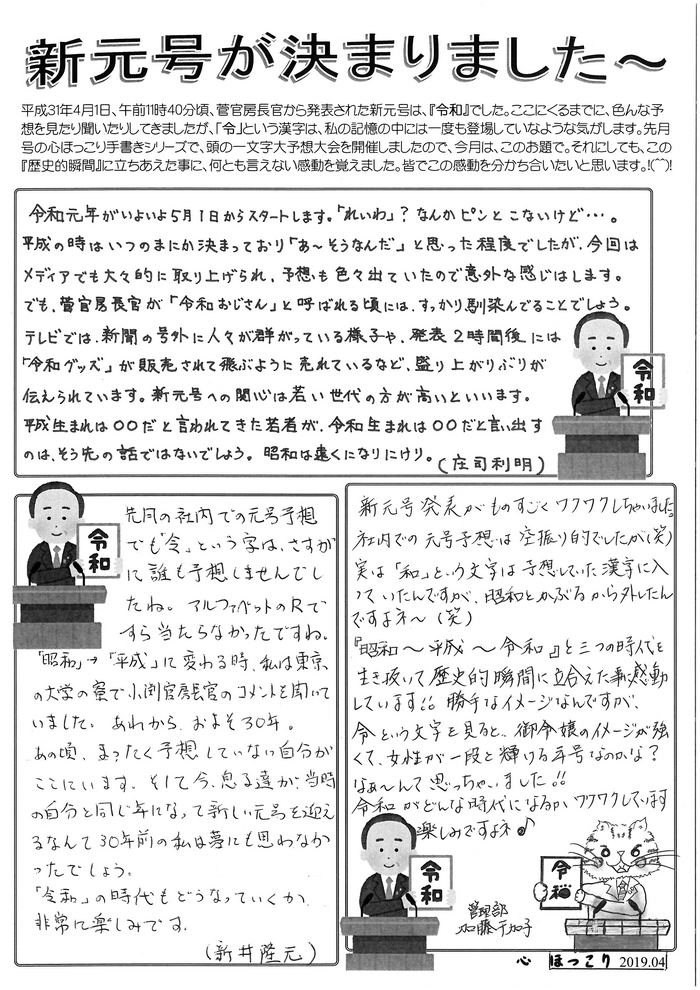 新元号が決まりました～
平成31年4月1日、午前11時40分頃、菅官房長官から発表された新元号は、『令和』でした。ここにくるまでに、色んな予
想を見たり聞いたりしてきましたが、「令」という漢字は、私の記憶の中には一度も登場していなような気がします。先月
号の心ほっこり手書きシリーズで、頭の一文字大予想大会を開催しましたので、今月は、このお題で。それにしても、この
『歴史的瞬間』に立ちあえた事に、何とも言えない感動を覚えました。皆でこの感動を分かち合いたいと思います。!(^^)!
令和元年がいよいよ5月1日からスタートします。「れいわ」？なんかピンとこないけど…。
平成の時はいつのまにか決まっており「あ～そうなんだ」と思った程度でしたが、今回は
メディアでも大々的に取り上げられ、予想も色々出ていたので意外な感じはします。
でも、菅官房長官が「令和おじさん」と呼ばれる頃には、すっかり馴染んでることでしょう。
テレビでは、新聞の号外に人々が群がっている様子や、発表2時間後には
「令和グッズ」が販売されて飛ぶように売れているなど、盛り上がりぶりが
伝えられています。新元号への関心は若い世代の方が高いといいます。
平成生まれは○○だと言われてきた若者が、令和生まれは○○だと言い出す
のは、そう先の話ではないでしょう。昭和は遠くになりにけり。
(庄司利明)
令和
先月の社内での元号予想
でも「令」という字は、さすが
に誰も予想しませんでし
たね。アルファベットのRで
すら当たらなかったですね。
「昭和」→「平成」に変わる時、私は東京
の大学の寮で小渕官房長官のコメントを聞いて
いました。あれから、およそ30年。
あの頃、まったく予想していない自分が
ここにいます。そして今、息子達が、当時
の自分と同じ年になって新しい元号を迎え
るなんて30年前の私は夢にも思わなか
ったでしょう。
「令和」の時代もどうなっていくか
非常に楽しみです。
(新井隆元)
令和
新元号発表がものすごくワクワクしちゃいました。
社内での元号予想は空振り的でしたが(笑)
実は「和」という文字は予想していた漢字に入
っていたんですが、昭和とかぶるから外したん
ですよネ～(笑)
『昭和～平成～令和』と三つの時代を
生き抜いて歴史的瞬間に立合えた事、感動
しています!!勝手なイメージなんですが、
令という文字を見ると、御令嬢のイメージが強
くて、女性が一段と輝ける年号なのかな？
なぁ～んて思っちゃいました!!
令和がどんな時代になるか、ワクワクしています
楽しみですよネ♪
令和
管理部
令
心 ほっこり 2019.04